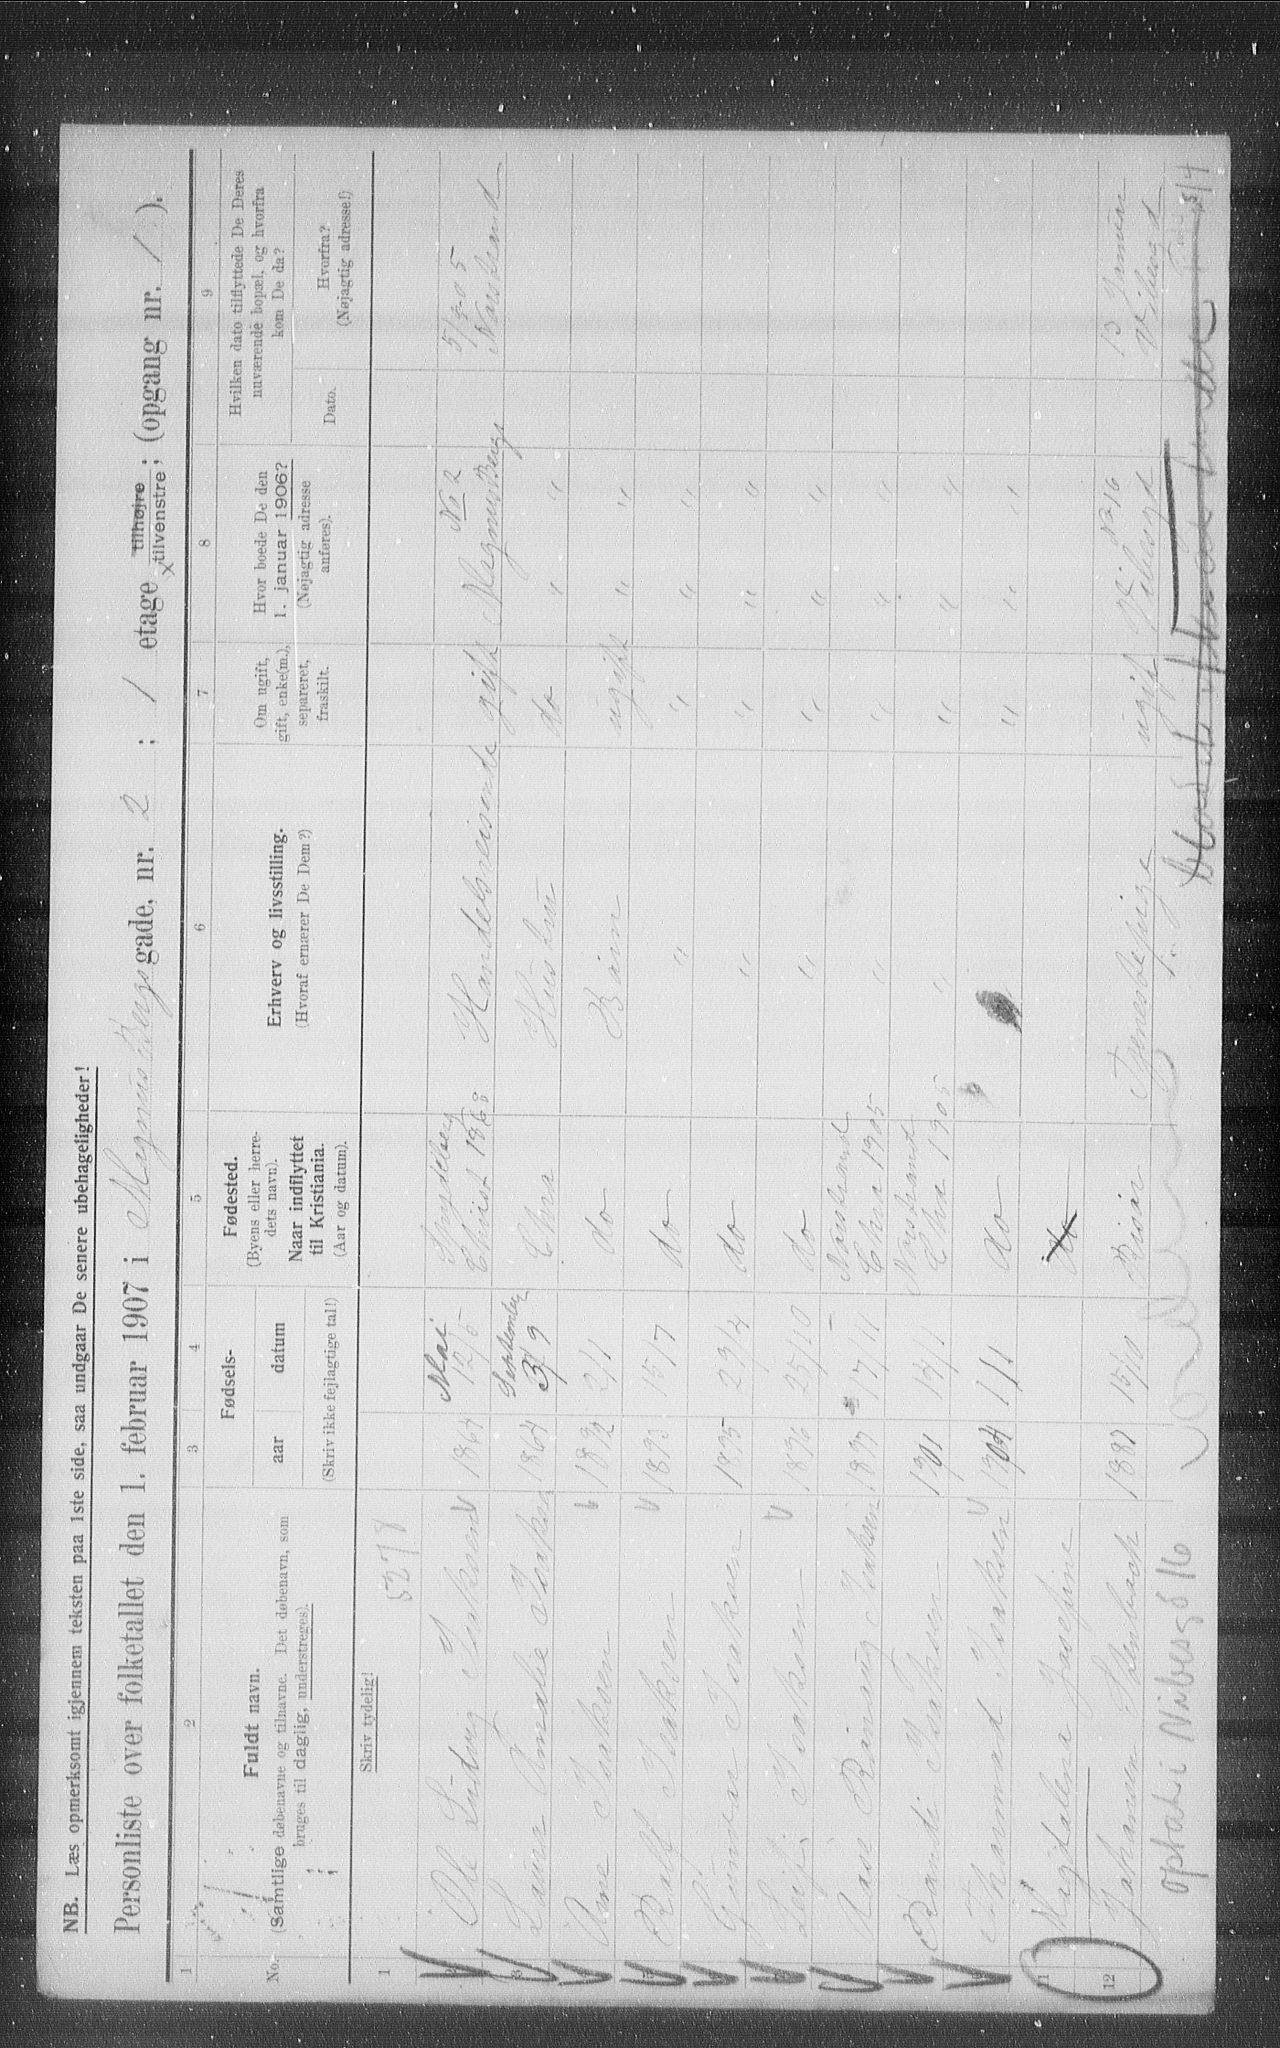 NB. Læs opmerksomt igjennem teksten paa 1ste side, saa undgaar De senere ubehageligheder!
Personliste over folketallet den 1. februar 1907 i Magnus Bergsgade, nr. 2 ; 1 etage tilhøjre x tilvenstre ; (opgang nr. 1 ).
1 2 3 4 5 6 7 8 9
No.
Fuldt navn.
(Samtlige døbenavne og tilnavne. Det døbenavn, som
bruges til daglig, understreges).
Fødsels-
aar datum
(Skriv ikke fejlagtige tal!)
Fødested.
(Byens eller herre-
dets navn).
Naar indflyttet
til Kristiania.
(Aar og datum).
Erhverv og livsstilling.
(Hvoraf ernærer De Dem?)
Om ugift,
gift, enke(m.),
separeret,
fraskilt.
Hvor boede De den
1. januar 1906?
(Nøjagtig adresse
anføres).
Hvilken dato tilflyttede De Deres
nuværende bopæl, og hvorfra
kom De da?
Dato.
Hvorfra?
(Nøjagtig adresse!)
Skriv tydelig!
1 5278
2 Ole Ludvig Isaksen 1864 Mai 12/5 Christ 1868 Handelsreisende gift Magnus Bergs No 2 5/2 05 Nordstrand
3 Laura Amalie Isaksen 1864 September 3/9 Chra Hustru do " "
Arne Isaksen 1892 2/1 do Barn ugift " "
Ralf Isaksen 1893 15/7 do " " " "
Gunvor Isaksen 1895 23/2 do " " " "
Leif Isaksen 1896 25/10 do " " " "
Aase Isaksen 1897 17/11 Nordstrand Chra 1905 " " " "
Randi Isaksen 1901 19/1 Nordstrand Chra 1905 " " " "
Isaksen 1904 1/1 do " " "
11 Magdalena Josefine do
12 Johansen 1887 15/11 Tjenestepige ugift No 16 13 Januar
optat i Nibesgd 16
3/4